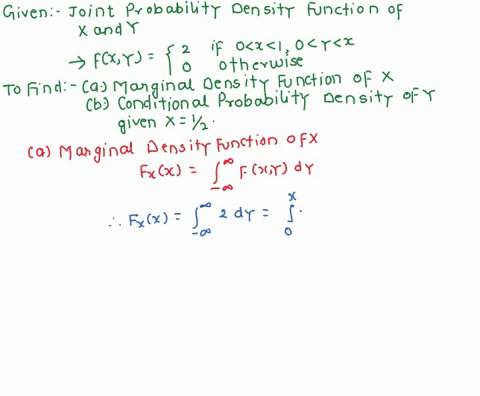 Given:- Joint Probability Density Function of
X and Y
→ f(x,Y) = { 2 if 0<x<1, 0<Y<x
0 otherwise
To Find:- (a) Marginal Density Function of X
(b) Conditional Probability Density of Y
given X = 1/2.
(a) Marginal Density Function of X
Fx(x) = ∫_{-∞}^{∞} F(x,Y) dY
∴ Fx(x) = ∫_{-∞}^{∞} 2 dY = ∫_{0}^{x}